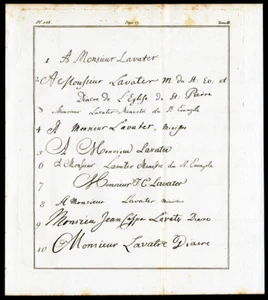 1 A Monsieur Lavater
2 A Monsieur Lavater M. du St: Ev: et
Diacre de L'Eglise de St: Pierre
3 Monsieur Lavater Ministre du St. Evangile
4 A Monsieur Lavater, Ministre
5 A Monsieur Lavater
6 A Monsieur Lavater Ministre du St. Evangile
7 Monsieur J C. Lavater
8 A Monsieur Lavater
9 Monsieur Jean Caspe Lavater Diacre
10 Monsieur Lavatre Diacre